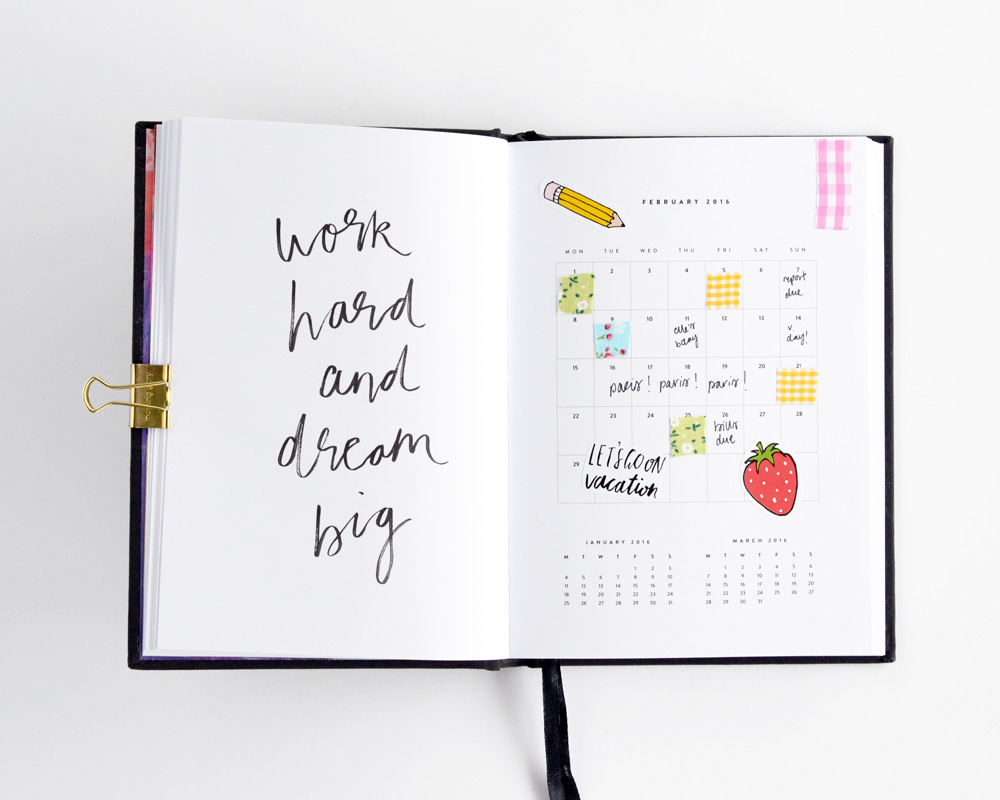 work
hard
and
dream
big
FEBRUARY 2016
MON TUE WED THU FRI SAT SUN
1 2 3 4 5 6 7
report
due
8 9 10 11 12 13 14
elle's
bday
v.
day!
15 16 17 18 19 20 21
paris! paris! paris!
22 23 24 25 26 27 28
bills
due
29
LET'S GO ON
vacation
JANUARY 2016
M T W T F S S
1 2 3
4 5 6 7 8 9 10
11 12 13 14 15 16 17
18 19 20 21 22 23 24
25 26 27 28 29 30 31
MARCH 2016
M T W T F S S
1 2 3 4 5 6
7 8 9 10 11 12 13
14 15 16 17 18 19 20
21 22 23 24 25 26 27
28 29 30 31